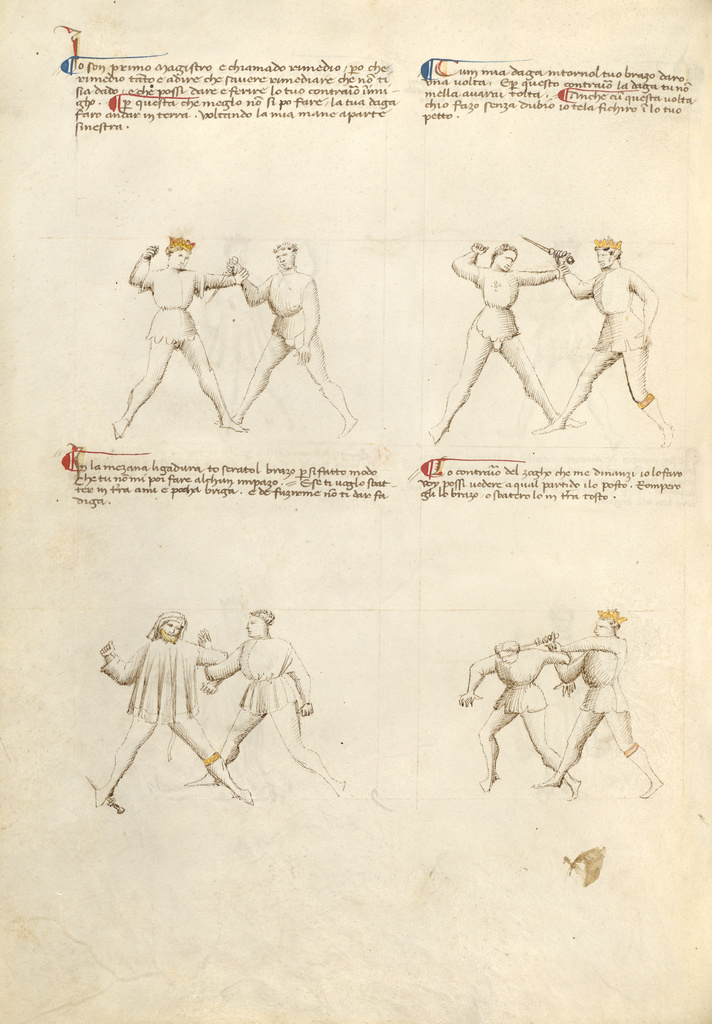 Io son primo Magistro e chiamado rimedio, ꝑo che
rimedio tãto e adire che savere rimediare che nõ ti
sia dado, e chẽ possi dare e ferire lo tuo contraio inimi-
gho. Ꝑ questa che meglo nõ si po fare, la tua daga
faro andar in terra. Voltando la mia mane aparte
sinestra.
Cum mia daga intornol tuo brazo daro
una volta. Eꝑ questo contraio la daga tu nõ
mella avarai tolta. Anche cũ questa volta
chio fazo senza dubio io tela fichiro ĩ lo tuo
petto.
In la mezana ligadura to seratol brazo ꝑ sifatto modo
Che tu nõ mi poi fare alchun impazo. E se ti voglo sbat-
ter in tr̃a ami e pocha briga. e de fuzirme nõ ti dar fa
diga.
Lo contraio del zogho che me dinanzi io lo faro
voy possi vedere a qual partido ilo posto. Rompero
gli lo brazo o sbatero lo in tr̃a tosto.